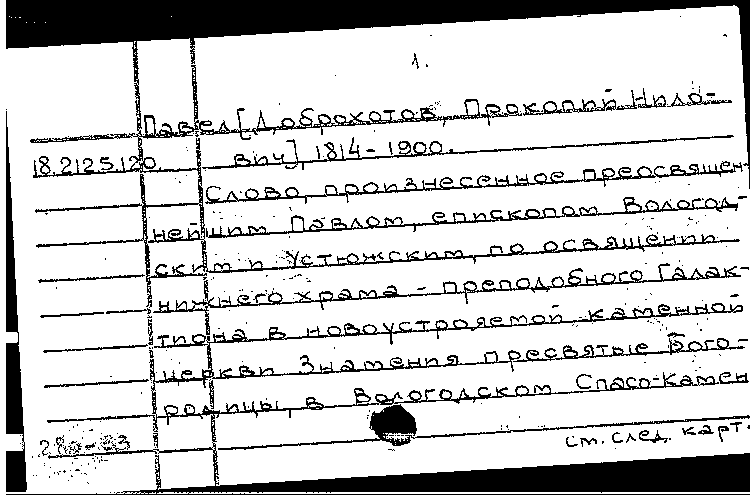 1.
Павел [Доброхотов, Прокопий Нило-
18.2125.120. вич], 1814-1900.
Слово, произнесенное преосвящен-
нейшим Павлом, епископом Вологод-
ским и Устюжским, по освящении
нижнего храма - преподобного Галак-
тиона в новоустрояемой каменной
церкви Знамения пресвятые Бого-
родицы, в Вологодском Спасо-Камен
см. след. карт.